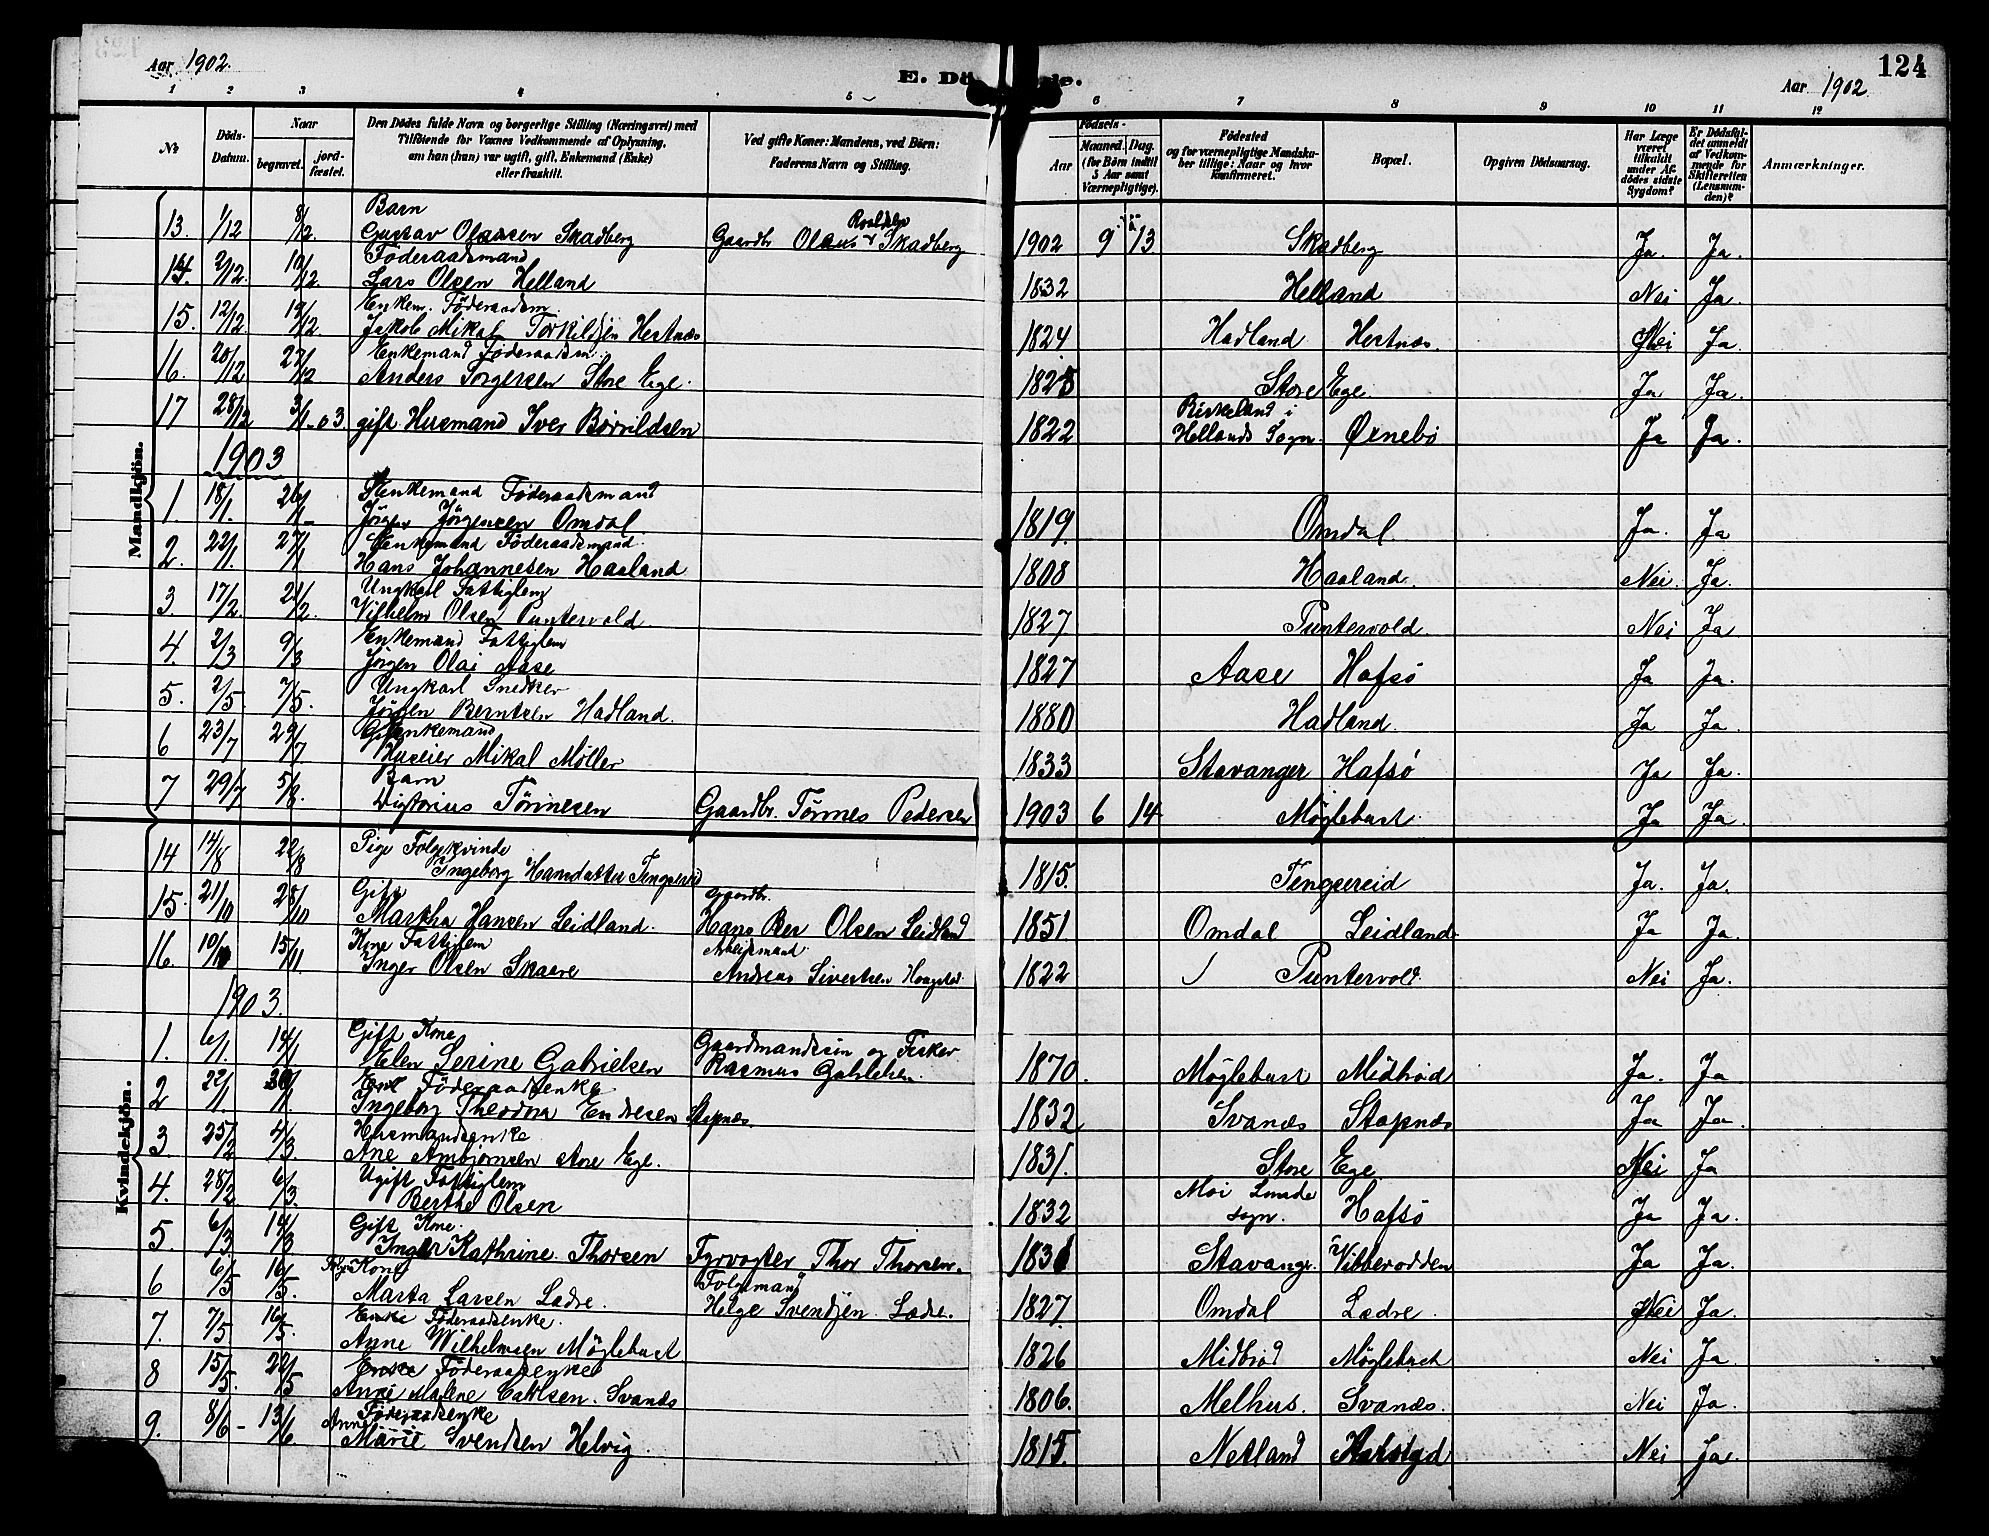 Aar 1902.
E. Dö de.
124
Aar 1902
1 2 3 4 5 6 7 8 9 10 11 12
No
Döds-Datum.
Naar
begravet.
jord-fæstet.
Den Dödes fulde Navn og borgerlige Stilling (Næringsvei) med Tilföiende for Voxnes Vedkommende af Oplysning, om han (hun) var ugift, gift, Enkemand (Enke) eller fraskilt.
Ved gifte Koner: Mandens, ved Börn: Faderens Navn og Stilling.
Födsels-
Aar
Maaned. Dag.
(for Börn indtil 5 Aar samt Værnepligtige).
Födested
og for værnepligtige Mandska-ber tillige: Naar og hvor Konfirmeret.
Bopæl.
Opgiven Dödsaarsag.
Har Læge været tilkaldt under Af-dödes sidste Sygdom?
Er Dödsfal-det anmeldt af Vedkom-mende for Skifteretten (Lensman-den)?
Anmærkninger.
Mandkjön.
Barn
Roaldsen
13. 1/12 8/12. Gustav Olausen Skadberg Gaardbr Olaus Skadberg 1902 9 13 Skadberg Ja. Ja.
Føderaadsmand
14. 2/12. 10/12. Lars Olsen Helland 1832 Helland Nei Ja.
Enkem. Føderaadsm
15. 12/12 19/12. Jakob Mikal Torkildsen Hestnæs 1824 Hadland Hestnæs. Nei Ja.
Enkemand Føderaadsm.
16. 20/12 27/12 Anders Torgersen Store Ege. 1828 Store Ege. Ja Ja.
Birkeland i
17 28/12 3/1-03 gift Husmand Iver Børildsen 1822 Hellands Sogn. Ørnebø Ja Ja.
1903
Enkemand Føderaadsmand
1. 18/1. 26/1- Jørgen Jørgensen Omdal 1819. Omdal. Ja. Ja
Enkemand Føderaadsmand.
2. 22/1. 27/1 Hans Johannesen Haaland 1808 Haaland. Nei. Ja.
Ungkarl Fattiglem
3. 17/2. 21/2. Vilhelm Olsen Puntervold 1827 Puntervold. Nei Ja
Enkemand Fattiglem
4. 2/3 9/3 Jørgen Olai Aase 1827 Aase Hafsø Ja Ja.
Ungkarl Snedker
5. 2/5. 7/5. Jørgen Berntsen Hadland. 1880 Hadland. Ja Ja
Enkemand
6 23/7 29/7 Huseier Mikal Møller 1833 Stavanger Hafsø Ja Ja.
Barn
7 29/7 5/8. Tørinesen Gaardbr. Tørines Pedersen 1903 6 14 Møglebust Ja Ja.
Kvindekjön.
Pige Folgekvinde
14 14/8 22/8 Ingeborg Hansdatter Tengsereid 1815. Tengsereid Ja. Ja.
Gift Gaardbr.
15. 21/10 28/10 Martha Hansen Leidland. Hans Ber Olsen Leidland 1851. Omdal Leidland. Ja Ja.
Kone Fattiglem Arbeidsmand
16. 10/11 15/11. Inger Olsen Skaare Andreas Sivertsen 1822 Puntervold. Nei Ja.
1903.
Gift Kone Gaardmandssøn og Fisker
1. 6/1. 14/1 Elen Serine Gabrielsen Rasmus Gabrielsen. 1870. Møglebust Midbrød Ja. Ja
Føderaadsenke
2 22/1 30/1. Ingeborg Theodora Endresen Stapnæs. 1832 Svanæs Stapnæs Ja Ja.
Husmandsenke
3 25/2 4/3. Ane Ambjørnsen Store Ege. 1831. Store Ege Nei Ja
Ugift Fattiglem Moi Lunde
4. 28/2 6/3. Berthe Olsen 1832 sogn. Hafsø Ja Ja.
Gift Kone.
5. 6/3. 14/3 Inger Kathrine Thorsen Fyrvogter Thor Thorsen. 1831 Stavanger Vibberodden Ja Ja.
Folge Kone Folgemand
6 6/5 16/5. Marta Larsen Lædre. Helge Svendsen Lædre. 1827. Omdal Lædre. Nei Ja.
Enke Føderaadsenke.
7. 7/5 16/5. Anne Wilhelmsen Møglebust 1826 Midbrød Møglebust Nei Ja.
Enke Føderaadsenke
8 15/5. 22/5 Anne Malene Carlsen. Svanæs 1806. Melhus. Svanæs. Nei Ja.
Føderaadsenke
9. 8/6- 13/6 Anne Marie Svendsen Helvig. 1815. Netland Nei Ja.